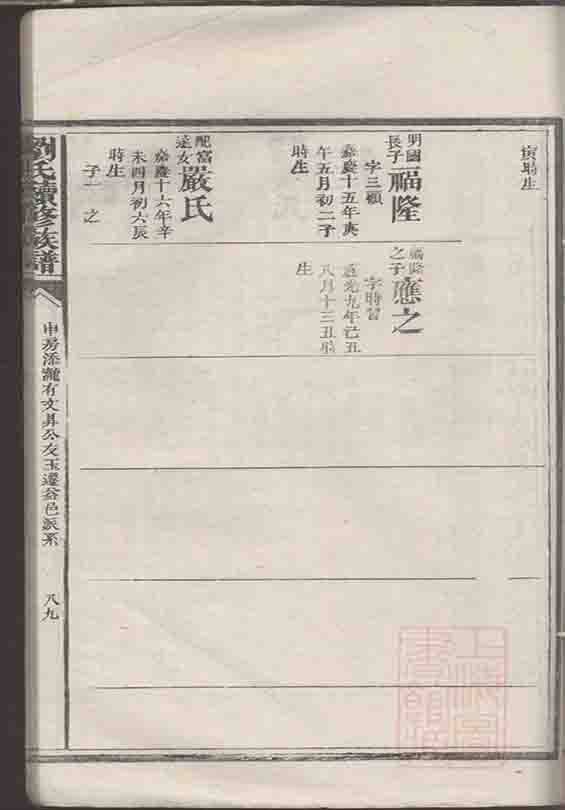 寅時生
明國
長子
福隆
字三願
嘉慶十五年庚
午五月初二子
時生
配富
遠女
嚴氏
嘉慶十六年辛
未四月初六辰
時生
子一 之
福隆
之子
應之
字時習
道光九年己丑
八月十三丑時
生
劉氏續修族譜
申房添瀧有文昇公友玉遷翁邑派系
八九
上海圖
書館藏